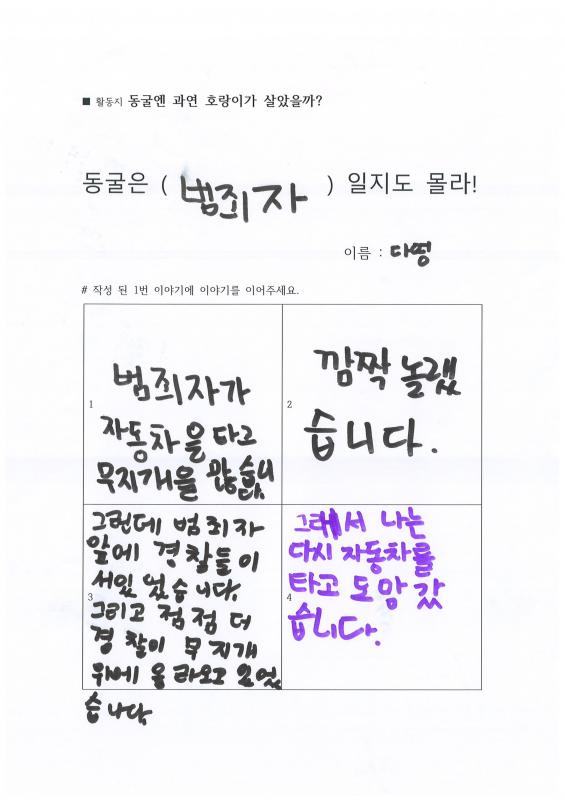 ■ 활동지 동굴엔 과연 호랑이가 살았을까?
동굴은 ( 범죄자 ) 일지도 몰라!
이름 : 다띵
# 작성 된 1번 이야기에 이야기를 이어주세요.
1
범죄자가
자동차을 타고
무지개을
2
깜짝 놀랬
습니다.
3
그런데 범죄자
앞에 경찰들이
서있 었습니다.
그리고 점점 더
경찰이 무지개
위에 올라오고 있었
습니다.
4
그래서 나는
다시 자동차를
타고 도망 갔
습니다.